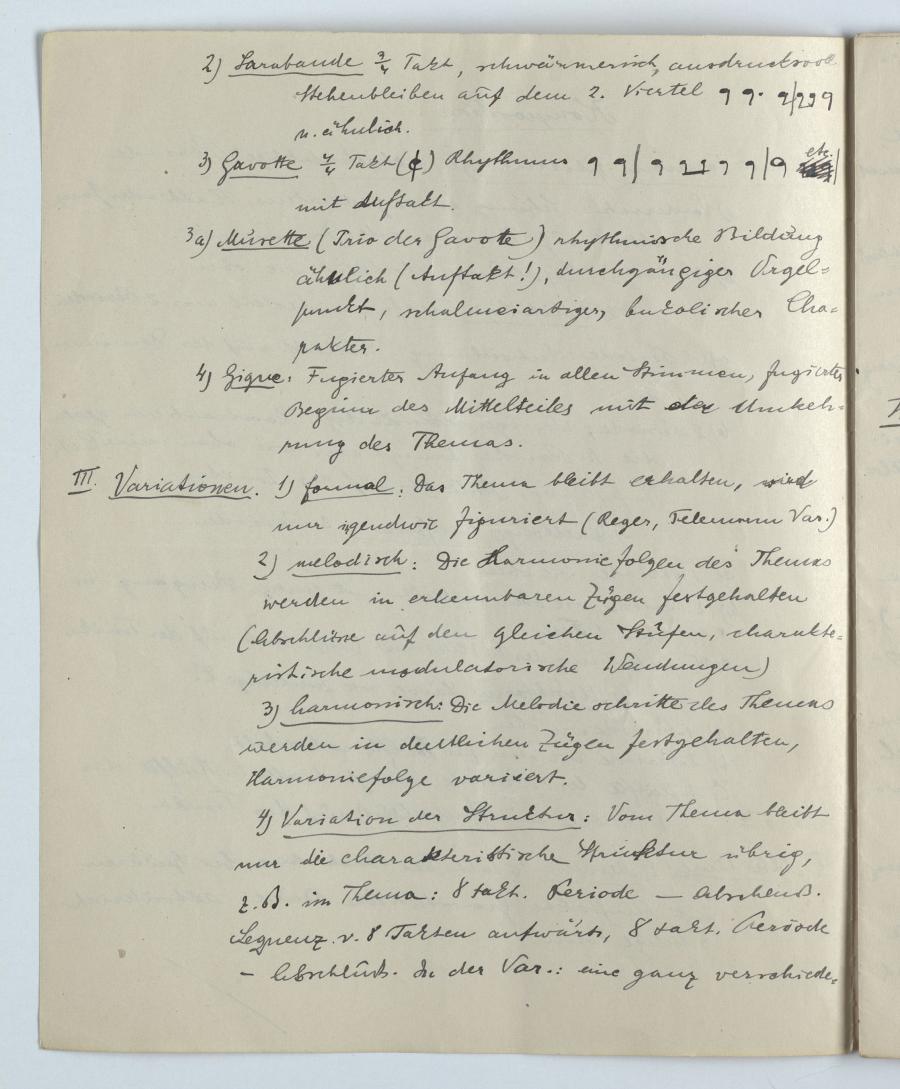 2) Sarabande 3/4 Takt, schwärmerisch, ausdrucksvoll
Stehenbleiben auf dem 2. Viertel
u. ähnlich.
3) Gavotte 4/4 Takt (¢) Rhythmus etc.
mit Auftakt.
3a) Musette (Trio der Gavotte) rhythmische Bildung
ähnlich (Auftakt!), durchgängiger Orgel=
punkt, schalmeiartiger, bukolischer Cha=
rakter.
4) Gigue: Fugierter Anfang in allen Stimmen, fugierter
Beginn des Mittelteiles mit der Umkeh=
rung des Themas.
III. Variationen. 1) formal: Das Thema bleibt erhalten, wird
nur irgendwie figuriert (Reger, Telemann Var.)
2) melodisch: Die Harmoniefolgen des Themas
werden in erkennbaren Zügen festgehalten
(Abschlüsse auf den gleichen Stufen, charakte=
ristische modulatorische Wendungen)
3) harmonisch: Die Melodieschritte des Themas
werden in deutlichen Zügen festgehalten,
Harmoniefolge variiert.
4) Variation der Struktur: Vom Thema bleibt
nur die charakteristische Struktur übrig,
z.B. im Thema: 8 takt. Periode — Abschluß.
Sequenz v. 8 Takten aufwärts, 8 takt. Periode
— Abschluß. In der Var.: eine ganz verschiede=